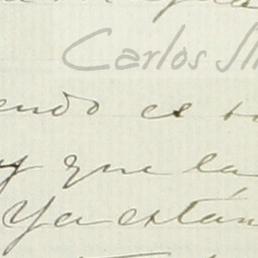 Carlos
endo es
y que la
Ya están